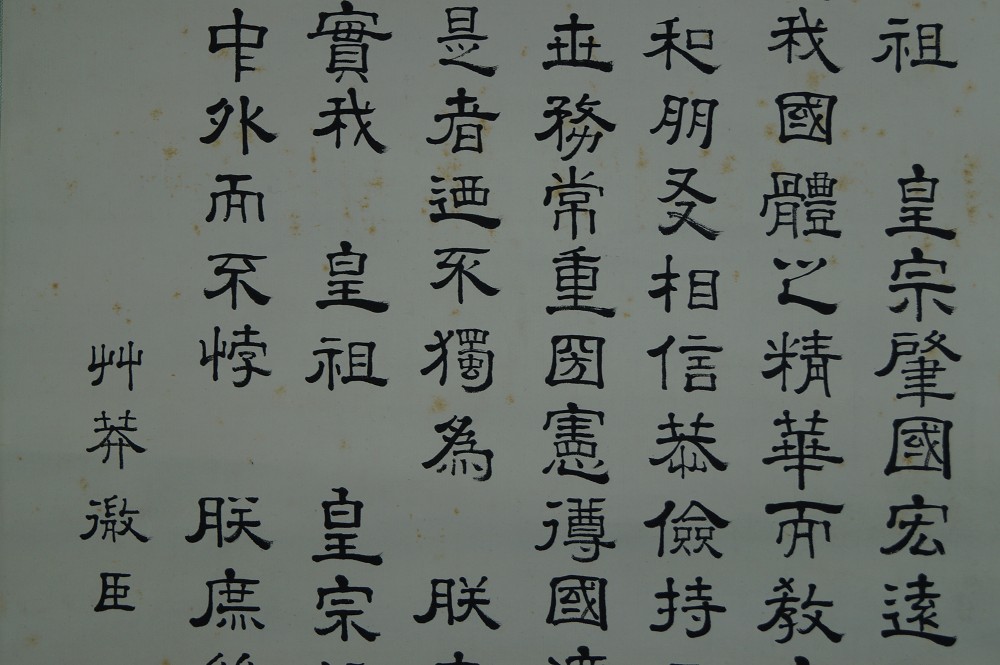 祖　皇宗肇國宏遠
我國體之精華而教
和朋友相信恭儉持
世務常重圀憲遵國
是者迺不獨為　朕
實我　皇祖　皇宗
中外而不悖　朕庶
艸莽微臣